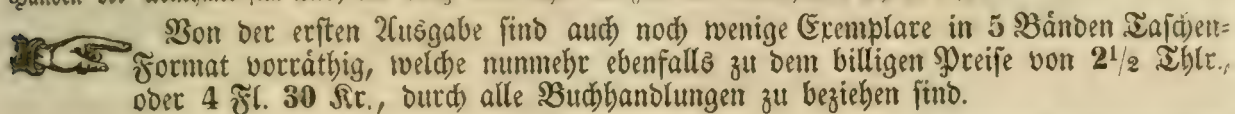 Von der ersten Ausgabe sind auch noch wenige Exemplare in 5 Bänden Taschen-
Format vorräthig, welche nunmehr ebenfalls zu dem billigen Preise von 2¹/₂ Thlr.,
oder 4 Fl. 30 Kr., durch alle Buchhandlungen zu beziehen sind.